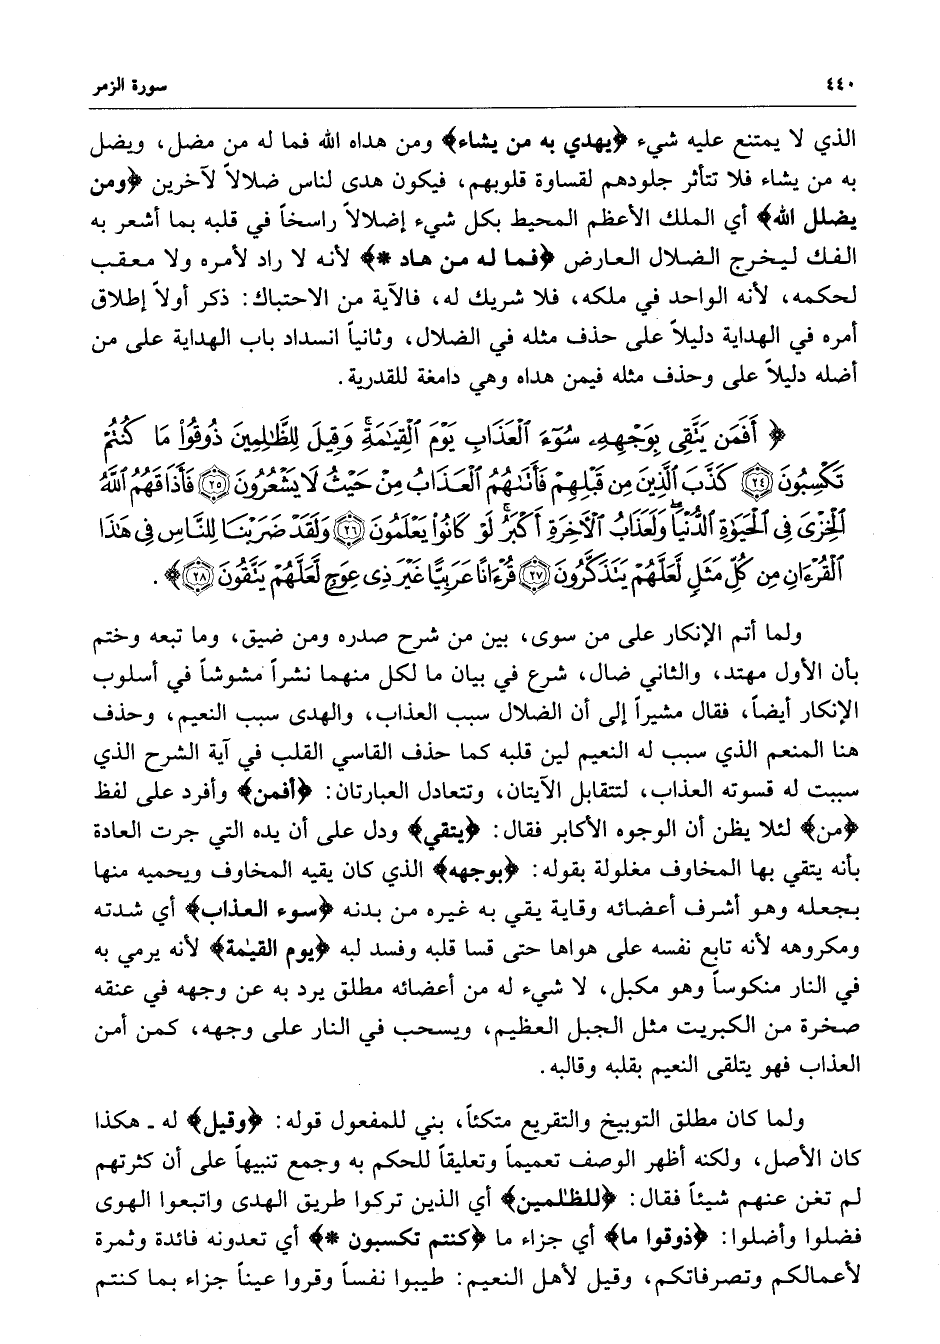 ٤٤٠ سورة الزمر
الذي لا يمتنع عليه شيء ﴿يهدي به من يشاء﴾ ومن هداه الله فما له من مضل، ويضل
به من يشاء فلا تتأثر جلودهم لقساوة قلوبهم، فيكون هدى لناس ضلالاً لآخرين ﴿ومن
يضلل الله﴾ أي الملك الأعظم المحيط بكل شيء إضلالاً راسخاً في قلبه بما أشعر به
الفك ليخرج الضلال العارض ﴿فما له من هاد *﴾ لأنه لا راد لأمره ولا معقب
لحكمه، لأنه الواحد في ملكه، فلا شريك له، فالآية من الاحتباك: ذكر أولاً إطلاق
أمره في الهداية دليلاً على حذف مثله في الضلال، وثانياً انسداد باب الهداية على من
أضله دليلاً على وحذف مثله فيمن هداه وهي دامغة للقدرية.
﴿ أَفَمَن يَتَّقِى بِوَجْهِهِۦ سُوٓءَ ٱلْعَذَابِ يَوْمَ ٱلْقِيَٰمَةِۚ وَقِيلَ لِلظَّٰلِمِينَ ذُوقُوا۟ مَا كُنتُمْ
تَكْسِبُونَ ﴿٢٤﴾ كَذَّبَ ٱلَّذِينَ مِن قَبْلِهِمْ فَأَتَىٰهُمُ ٱلْعَذَابُ مِنْ حَيْثُ لَا يَشْعُرُونَ ﴿٢٥﴾ فَأَذَاقَهُمُ ٱللَّهُ
ٱلْخِزْىَ فِى ٱلْحَيَوٰةِ ٱلدُّنْيَاۖ وَلَعَذَابُ ٱلْآخِرَةِ أَكْبَرُۚ لَوْ كَانُوا۟ يَعْلَمُونَ ﴿٢٦﴾ وَلَقَدْ ضَرَبْنَا لِلنَّاسِ فِى هَٰذَا
ٱلْقُرْءَانِ مِن كُلِّ مَثَلٍ لَّعَلَّهُمْ يَتَذَكَّرُونَ ﴿٢٧﴾ قُرْءَانًا عَرَبِيًّا غَيْرَ ذِى عِوَجٍ لَّعَلَّهُمْ يَتَّقُونَ ﴿٢٨﴾﴾.
ولما أتم الإنكار على من سوى، بين من شرح صدره ومن ضيق، وما تبعه وختم
بأن الأول مهتد، والثاني ضال، شرع في بيان ما لكل منهما نشراً مشوشاً في أسلوب
الإنكار أيضاً، فقال مشيراً إلى أن الضلال سبب العذاب، والهدى سبب النعيم، وحذف
هنا المنعم الذي سبب له النعيم لين قلبه كما حذف القاسي القلب في آية الشرح الذي
سببت له قسوته العذاب، لتتقابل الآيتان، وتتعادل العبارتان: ﴿أفمن﴾ وأفرد على لفظ
﴿من﴾ لئلا يظن أن الوجوه الأكابر فقال: ﴿يتقي﴾ ودل على أن يده التي جرت العادة
بأنه يتقي بها المخاوف مغلولة بقوله: ﴿بوجهه﴾ الذي كان يقيه المخاوف ويحميه منها
بجعله وهو أشرف أعضائه وقاية يقي به غيره من بدنه ﴿سوء العذاب﴾ أي شدته
ومكروهه لأنه تابع نفسه على هواها حتى قسا قلبه وفسد لبه ﴿يوم القيٰمة﴾ لأنه يرمي به
في النار منكوساً وهو مكبل، لا شيء له من أعضائه مطلق يرد به عن وجهه في عنقه
صخرة من الكبريت مثل الجبل العظيم، ويسحب في النار على وجهه، كمن أمن
العذاب فهو يتلقى النعيم بقلبه وقالبه.
ولما كان مطلق التوبيخ والتقريع متكئاً، بني للمفعول قوله: ﴿وقيل﴾ له ـ هكذا
كان الأصل، ولكنه أظهر الوصف تعميماً وتعليقاً للحكم به وجمع تنبيهاً على أن كثرتهم
لم تغن عنهم شيئاً فقال: ﴿للظٰلمين﴾ أي الذين تركوا طريق الهدى واتبعوا الهوى
فضلوا وأضلوا: ﴿ذوقوا ما﴾ أي جزاء ما ﴿كنتم تكسبون *﴾ أي تعدونه فائدة وثمرة
لأعمالكم وتصرفاتكم، وقيل لأهل النعيم: طيبوا نفساً وقروا عيناً جزاء بما كنتم